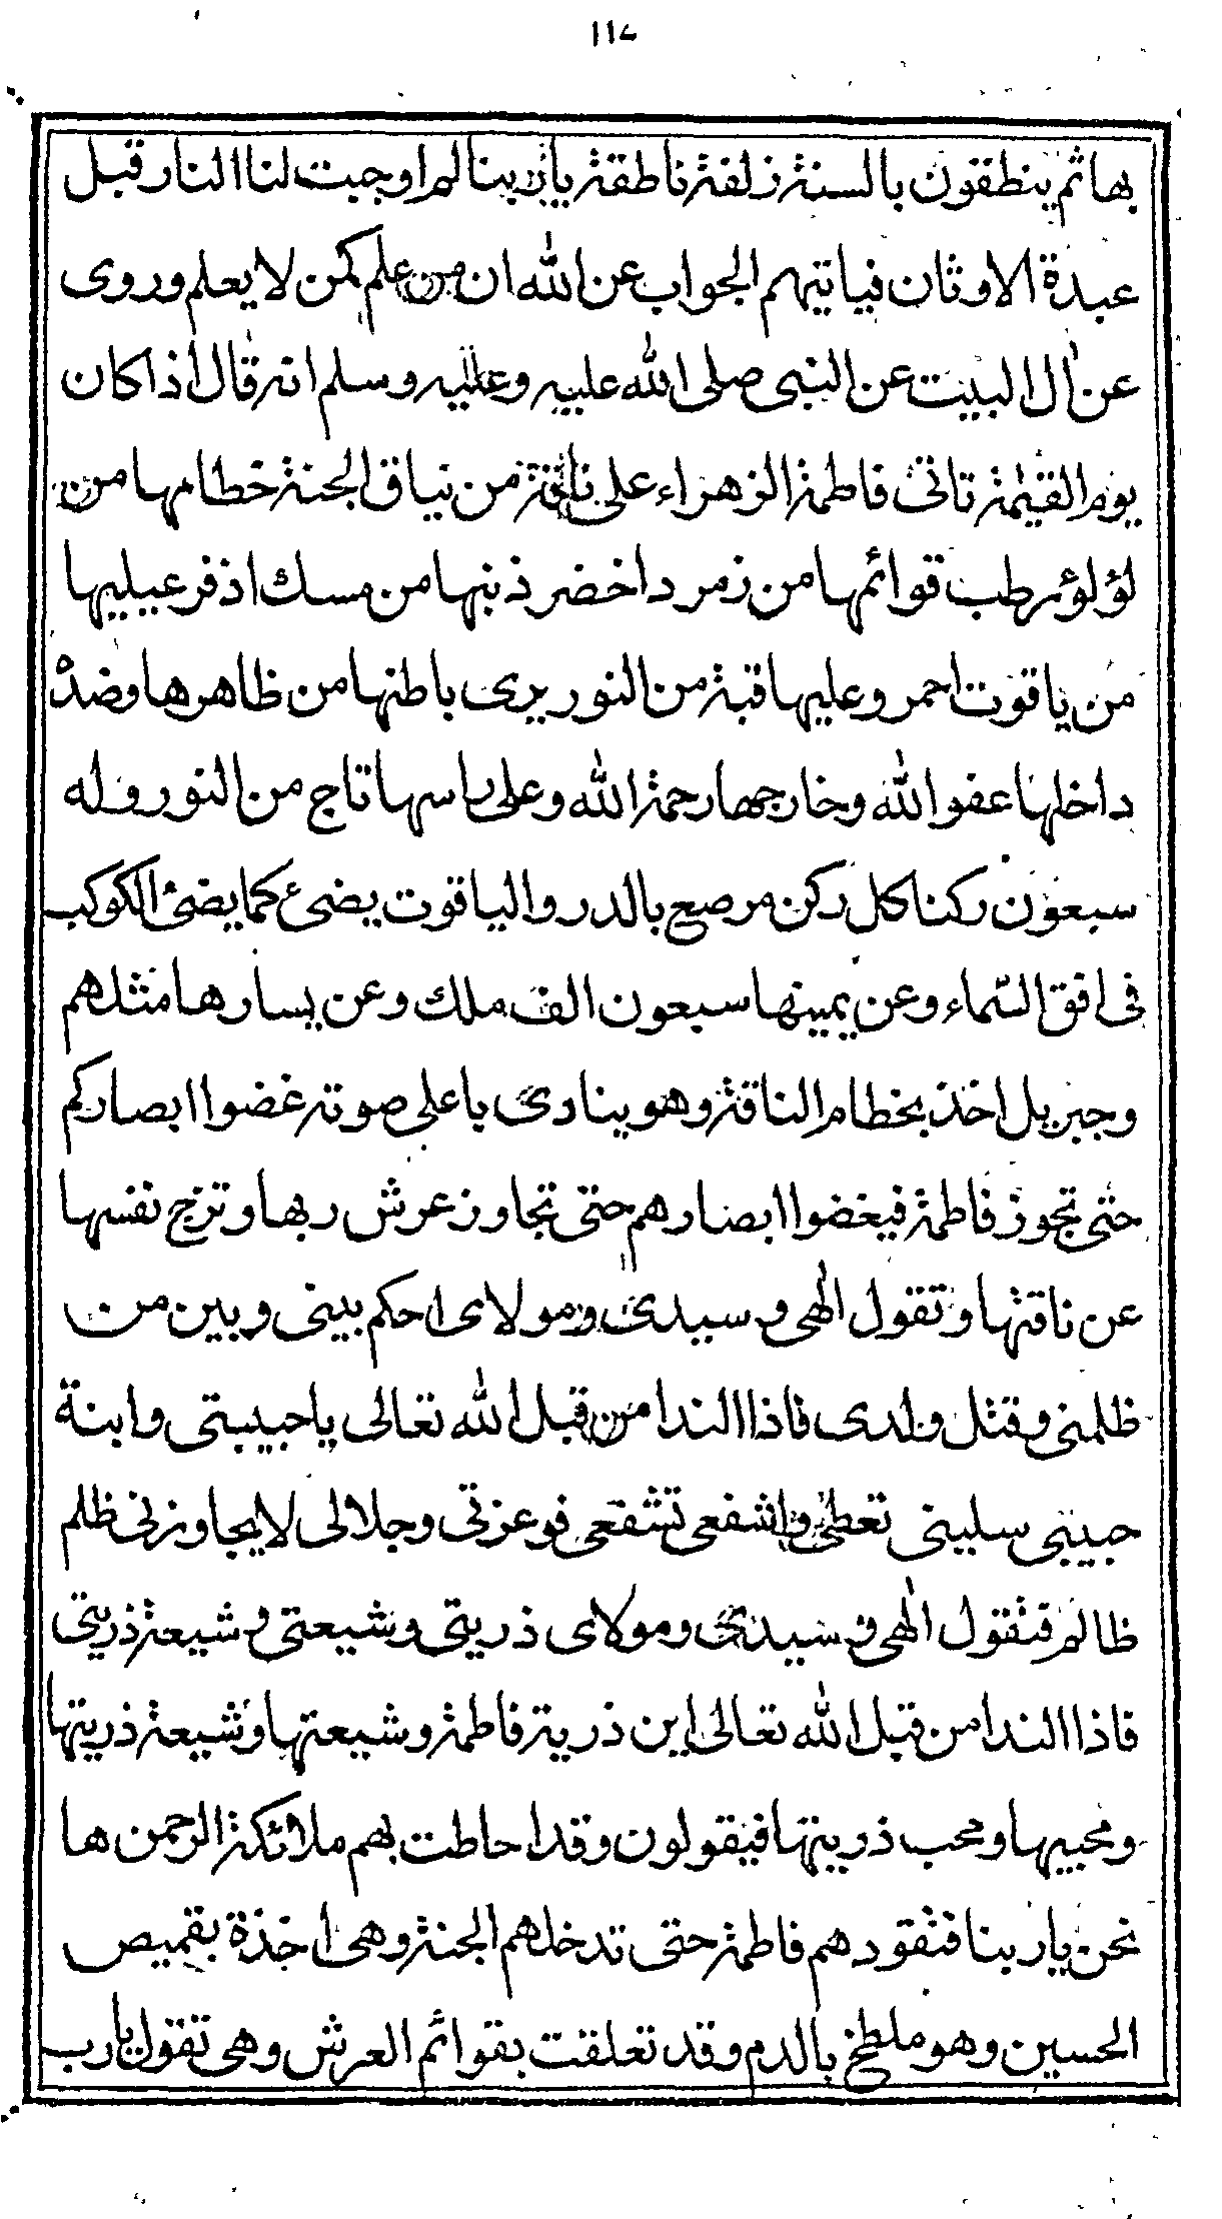 ١١٤
بها ثم ينطقون بالسنة زلفة ناطقة يا ربنا لم اوجبت لنا النار قبل
عبدة الاوثان فياتيهم الجواب عن الله ان من علم كمن لا يعلم وروى
عن ال البيت عن النبى صلى الله عليه وعليه وسلم انه قال اذا كان
يوم القيٰمة تاتى فاطمة الزهراء على ناقة من نياق الجنة خطامها من
لؤلوء رطب قوائمها من زمرد اخضر ذنبها من مسك اذفر عينيها
من ياقوت احمر وعليها قبة من النور يرى باطنها من ظاهرها وضده
داخلها عفو الله وخارجها رحمة الله وعلى راسها تاج من النور وله
سبعون ركنا كل ركن مرصع بالدر والياقوت يضىء كما يضئ الكوكب
فى افق السماء وعن يمينها سبعون الف ملك وعن يسارها مثلهم
وجبريل اخذ بخطام الناقة وهو ينادى باعلى صوته غضوا ابصاركم
حتى تجوز فاطمة فيغضوا ابصارهم حتى تجاوز عرش ربها وتزج نفسها
عن ناقتها وتقول الٰهى و سيدى ومولاى احكم بينى وبين من
ظلمنى وقتل ولدى فاذا الندا من قبل الله تعالى يا حبيبتى وابنة
حبيبى سلينى تعطى واشفعى تشفعى فوعزتى وجلالى لا يجاوزنى ظلم
ظالم فتقول الٰهى و سيدى ومولاى ذريتى وشيعتى و شيعة ذريتى
فاذا الندا من قبل الله تعالى اين ذرية فاطمة وشيعتها وشيعة ذريتها
ومحبيها ومحب ذريتها فيقولون وقد احاطت بهم ملائكة الرحمن ها
نحن يا ربنا فتقودهم فاطمة حتى تدخلهم الجنة وهى اخذة بقميص
الحسين وهو ملطخ بالدم وقد تعلقت بقوائم العرش وهى تقول يا رب